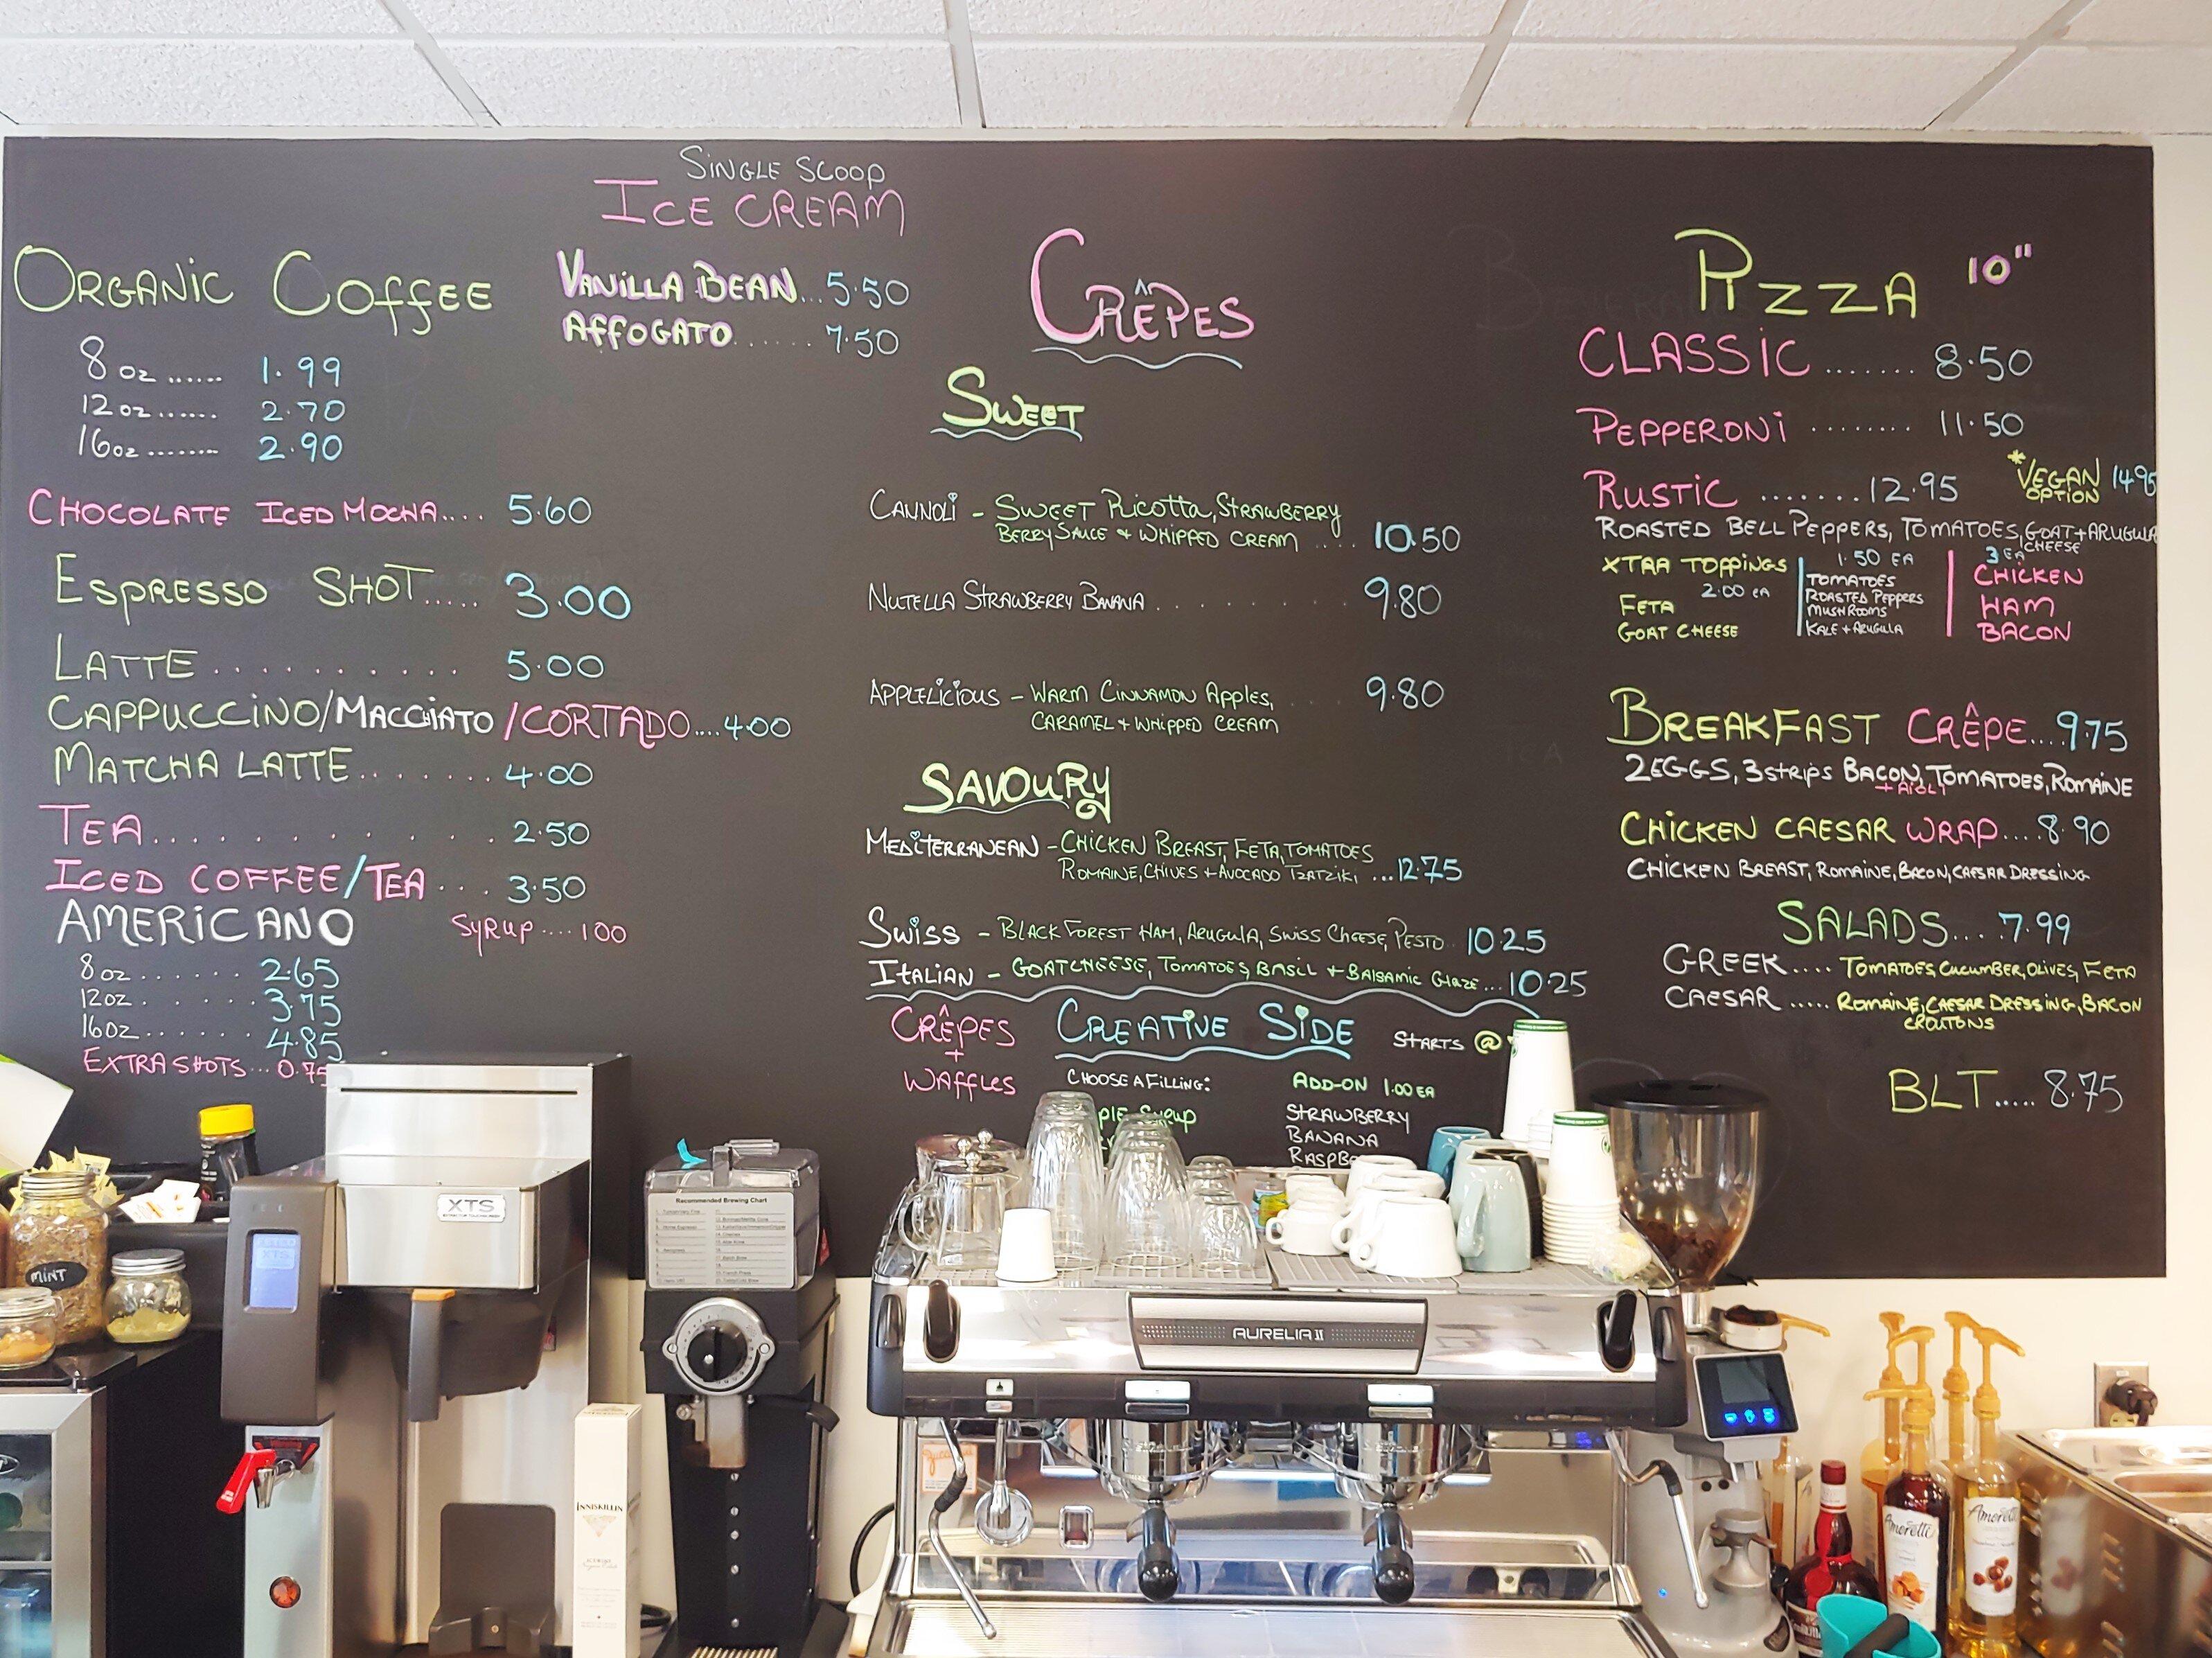 SINGLE SCOOP
ICE CREAM
VANILLA BEAN...5.50
AFFOGATO......7.50
ORGANIC COFFEE
8 oz ...... 1.99
12 oz ...... 2.70
16 oz ........ 2.90
CHOCOLATE ICED MOCHA.... 5.60
ESPRESSO SHOT..... 3.00
LATTE.......... 5.00
CAPPUCCINO/MACCHIATO/CORTADO....4.00
MATCHA LATTE....... 4.00
TEA............. 2.50
ICED COFFEE/TEA... 3.50
AMERICANO
SYRUP....1 00
8 oz ...... 2.65
12 oz ...... 3.75
16 oz ...... 4.85
EXTRA SHOTS...0.75
CRÊPES
SWEET
CANNOLI - SWEET RICOTTA, STRAWBERRY
BERRY SAUCE + WHIPPED CREAM .... 10.50
NUTELLA STRAWBERRY BANANA ........ 9.80
APPLELICIOUS - WARM CINNAMON APPLES, ... 9.80
CARAMEL + WHIPPED CREAM
SAVOURY
MEDITERRANEAN - CHICKEN BREAST, FETA, TOMATOES
ROMAINE, CHIVES + AVOCADO TZATZIKI ...12.75
SWISS - BLACK FOREST HAM, ARUGULA, SWISS CHEESE, PESTO.. 10.25
ITALIAN - GOAT CHEESE, TOMATOES, BASIL + BALSAMIC GLAZE...10.25
CRÊPES
+
WAFFLES
CREATIVE SIDE
STARTS @
CHOOSE A FILLING:
SYRUP
ADD-ON 1.00 EA
STRAWBERRY
BANANA
PIZZA 10"
CLASSIC ....... 8.50
PEPPERONI ........ 11.50
RUSTIC .......12.95
*VEGAN OPTION 14.95
ROASTED BELL PEPPERS, TOMATOES, GOAT CHEESE + ARUGULA
XTRA TOPPINGS
2.00 EA
FETA
GOAT CHEESE
1.50 EA
TOMATOES
ROASTED PEPPERS
MUSHROOMS
KALE + ARUGULA
3 EA
CHICKEN
HAM
BACON
BREAKFAST CRÊPE....9.75
2 EGGS, 3 STRIPS BACON, TOMATOES, ROMAINE
+ AIOLI
CHICKEN CAESAR WRAP....8.90
CHICKEN BREAST, ROMAINE, BACON, CAESAR DRESSING
SALADS.... 7.99
GREEK.... TOMATOES, CUCUMBER, OLIVES, FETA
CAESAR ..... ROMAINE, CAESAR DRESSING, BACON
CROUTONS
BLT..... 8.75
XTS
XTS
Recommended Brewing Chart
MINT
AURELIA II
INNISKILLIN
Amoretti
Amoretti